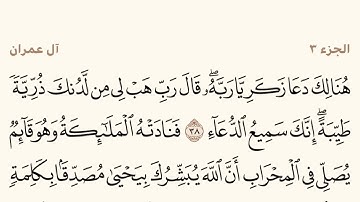 الجزء ٣ آل عمران
هُنَالِكَ دَعَا زَكَرِيَّا رَبَّهُۥۖ قَالَ رَبِّ هَبْ لِى مِن لَّدُنكَ ذُرِّيَّةً
طَيِّبَةًۖ إِنَّكَ سَمِيعُ الدُّعَآءِ ٣٨ فَنَادَتْهُ الْمَلَٰٓئِكَةُ وَهُوَ قَآئِمٌ
يُصَلِّى فِى الْمِحْرَابِ أَنَّ اللَّهَ يُبَشِّرُكَ بِيَحْيَىٰ مُصَدِّقًۢا بِكَلِمَةٍ